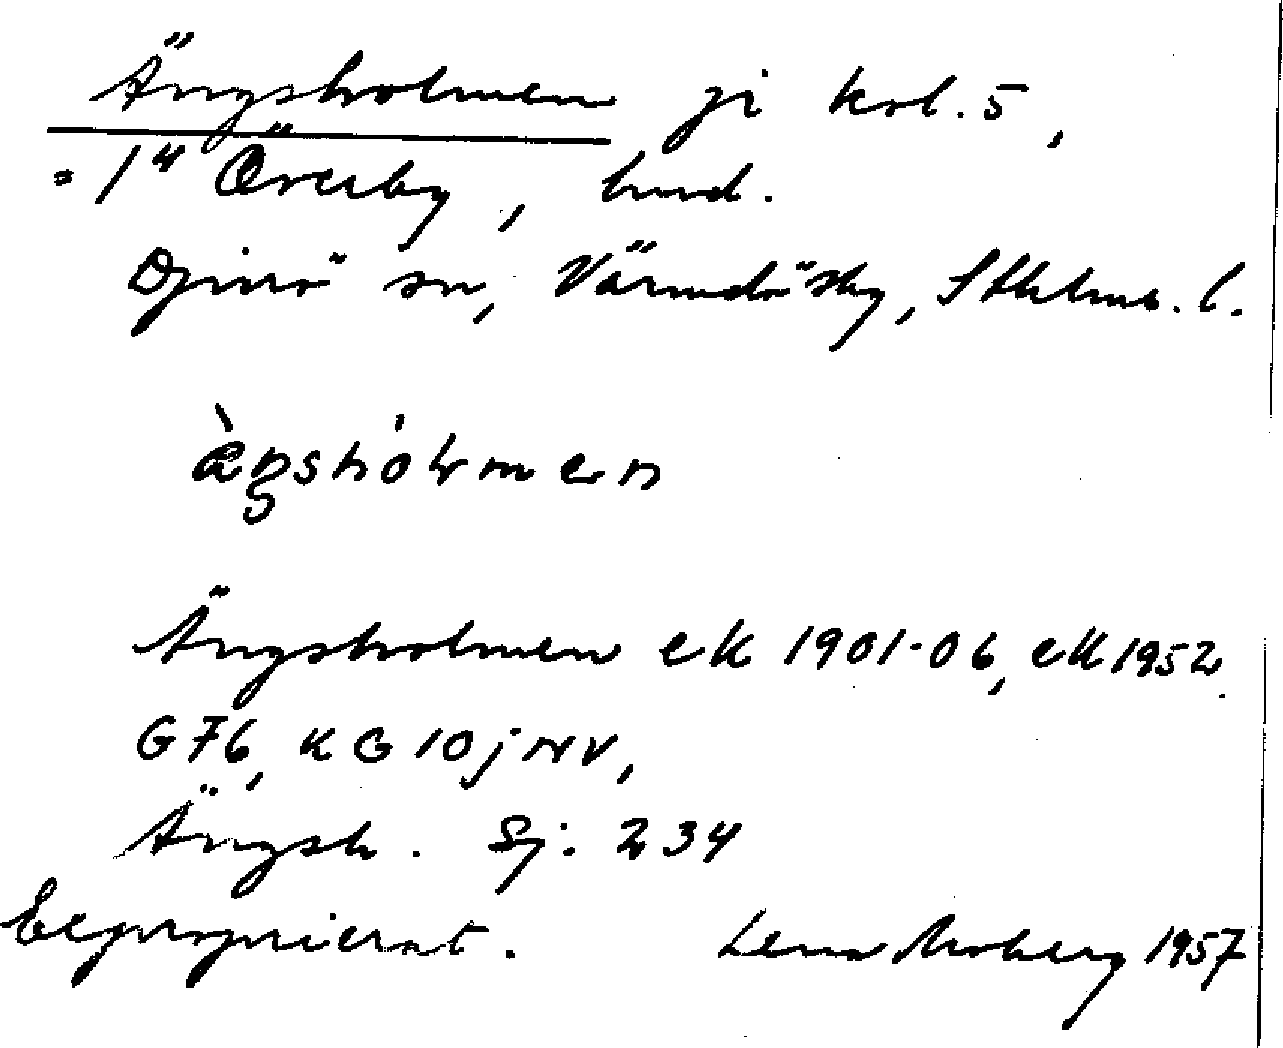 Ängsholmen på kol. 5,
= 1⁴ Överby, hmd.
Djurö sn, Värmdö skg, Sthlms. l.
ængshólmen
Ängsholmen ek 1901-06, ek 1952
G76, KG 10j NV,
Ängsh. Sj: 234
Exproprierat. Lena Moberg 1957